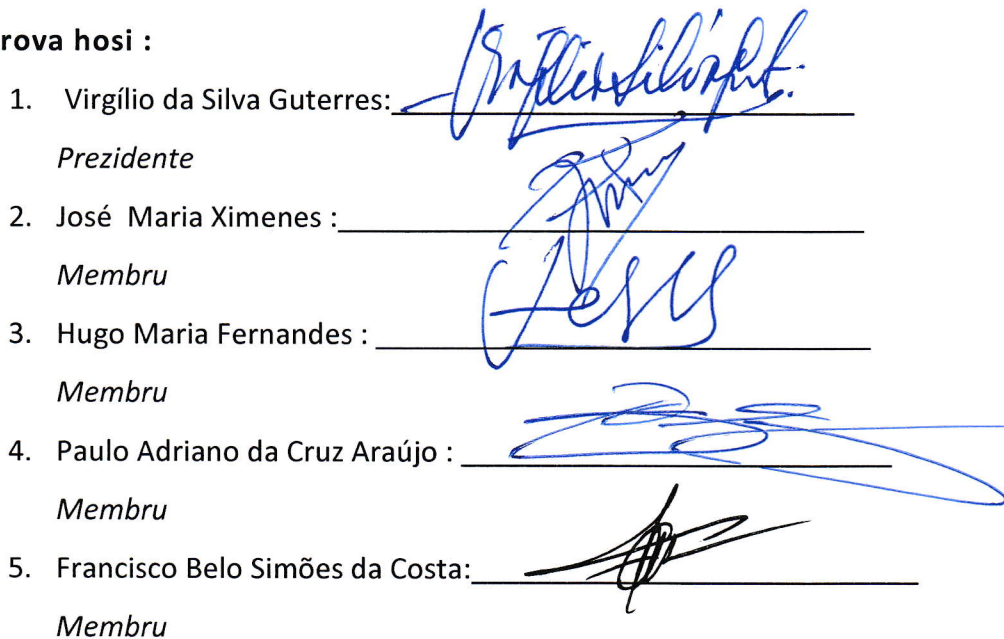 rova hosi :
1. Virgílio da Silva Guterres:
Prezidente
2. José Maria Ximenes :
Membru
3. Hugo Maria Fernandes :
Membru
4. Paulo Adriano da Cruz Araújo :
Membru
5. Francisco Belo Simões da Costa:
Membru